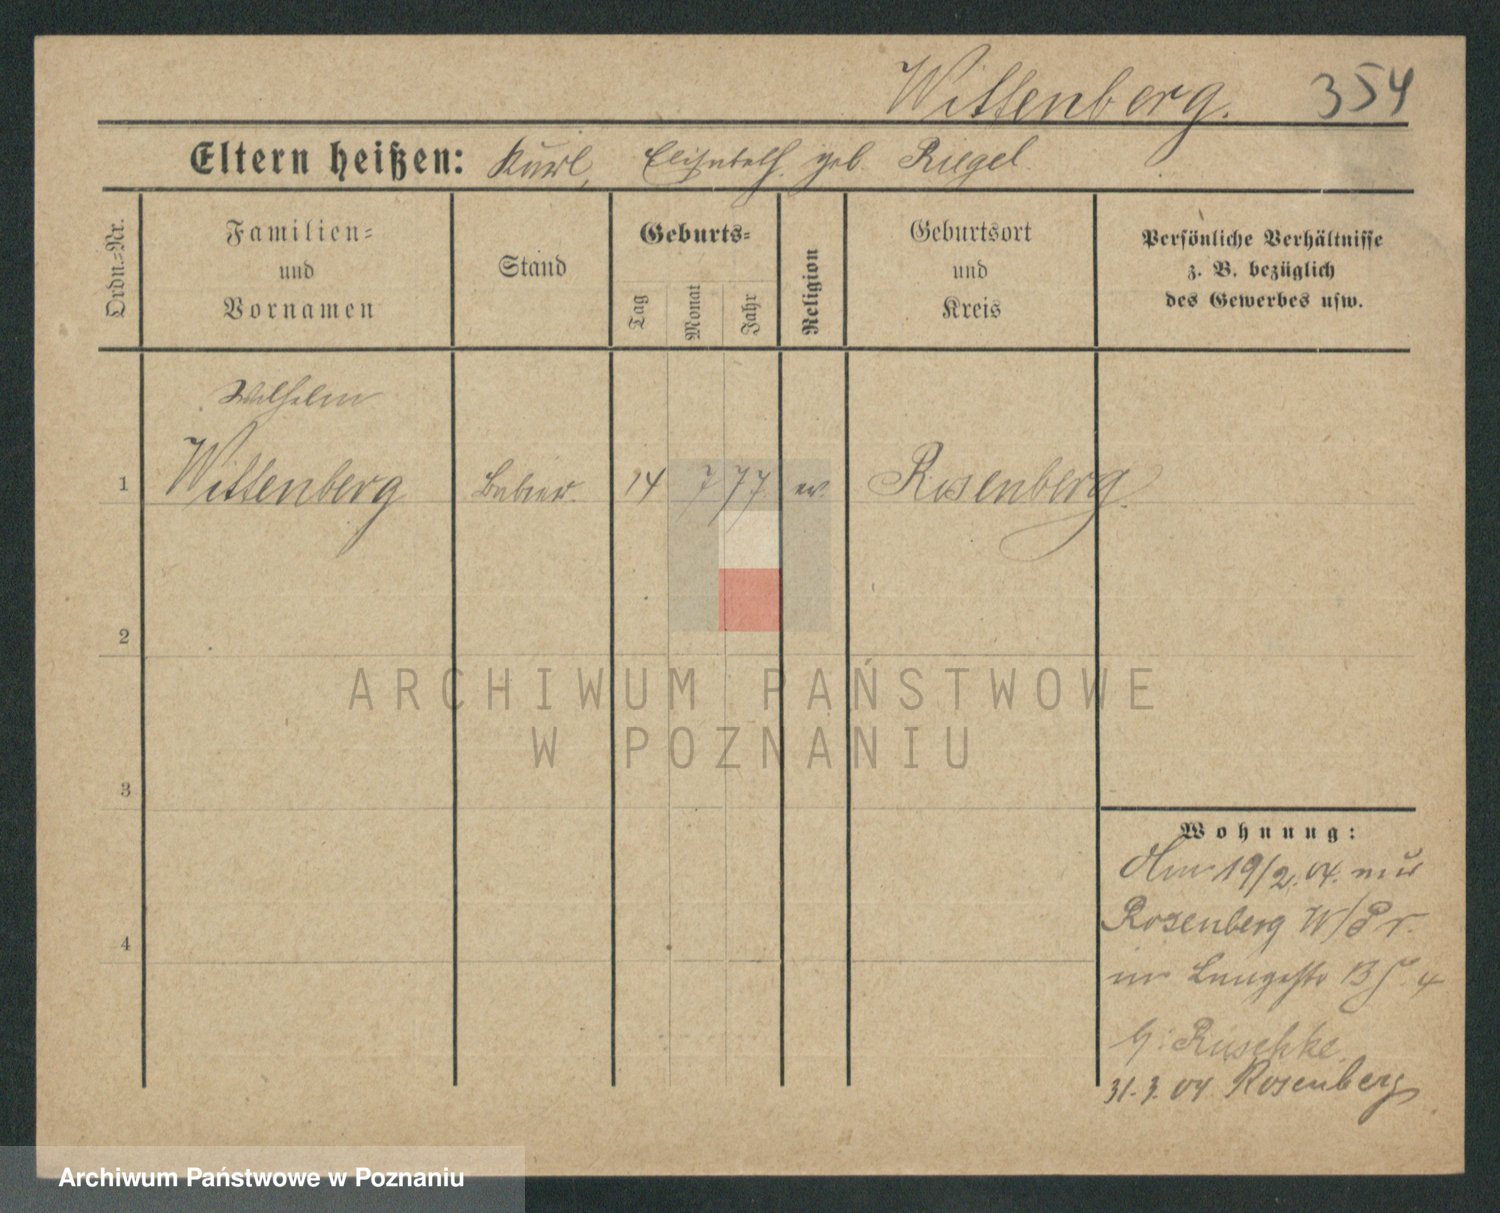 Wittenberg. 354
Eltern heißen: Karl, Elisabeth geb. Riegel
Ordn.=Nr.
Familien=
und
Vornamen
Stand
Geburts=
Tag
Monat
Jahr
Religion
Geburtsort
und
Kreis
Persönliche Verhältnisse
z. B. bezüglich
des Gewerbes usw.
Wilhelm
1 Wittenberg 14 7 77 ev. Rosenberg
2
3
4
ARCHIWUM PAŃSTWOWE
W POZNANIU
Wohnung:
19/2. 04.
Rosenberg W/Pr.
in Langestr 4
31. 3. 04 Rosenberg
Archiwum Państwowe w Poznaniu